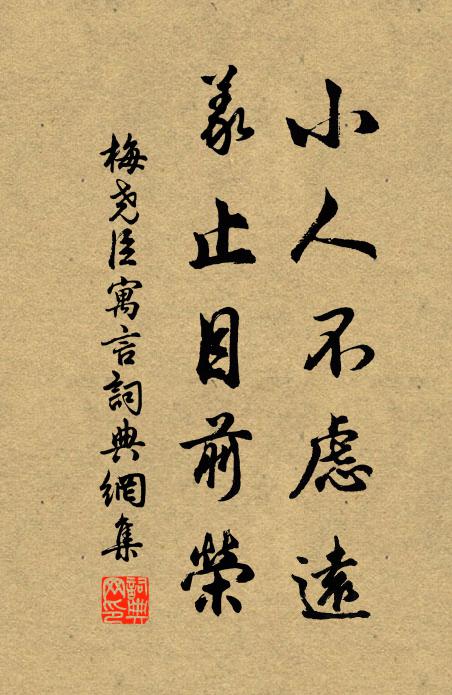 小人不慮遠
義止目前榮
梅堯臣寓言詞典網集
詞典網印